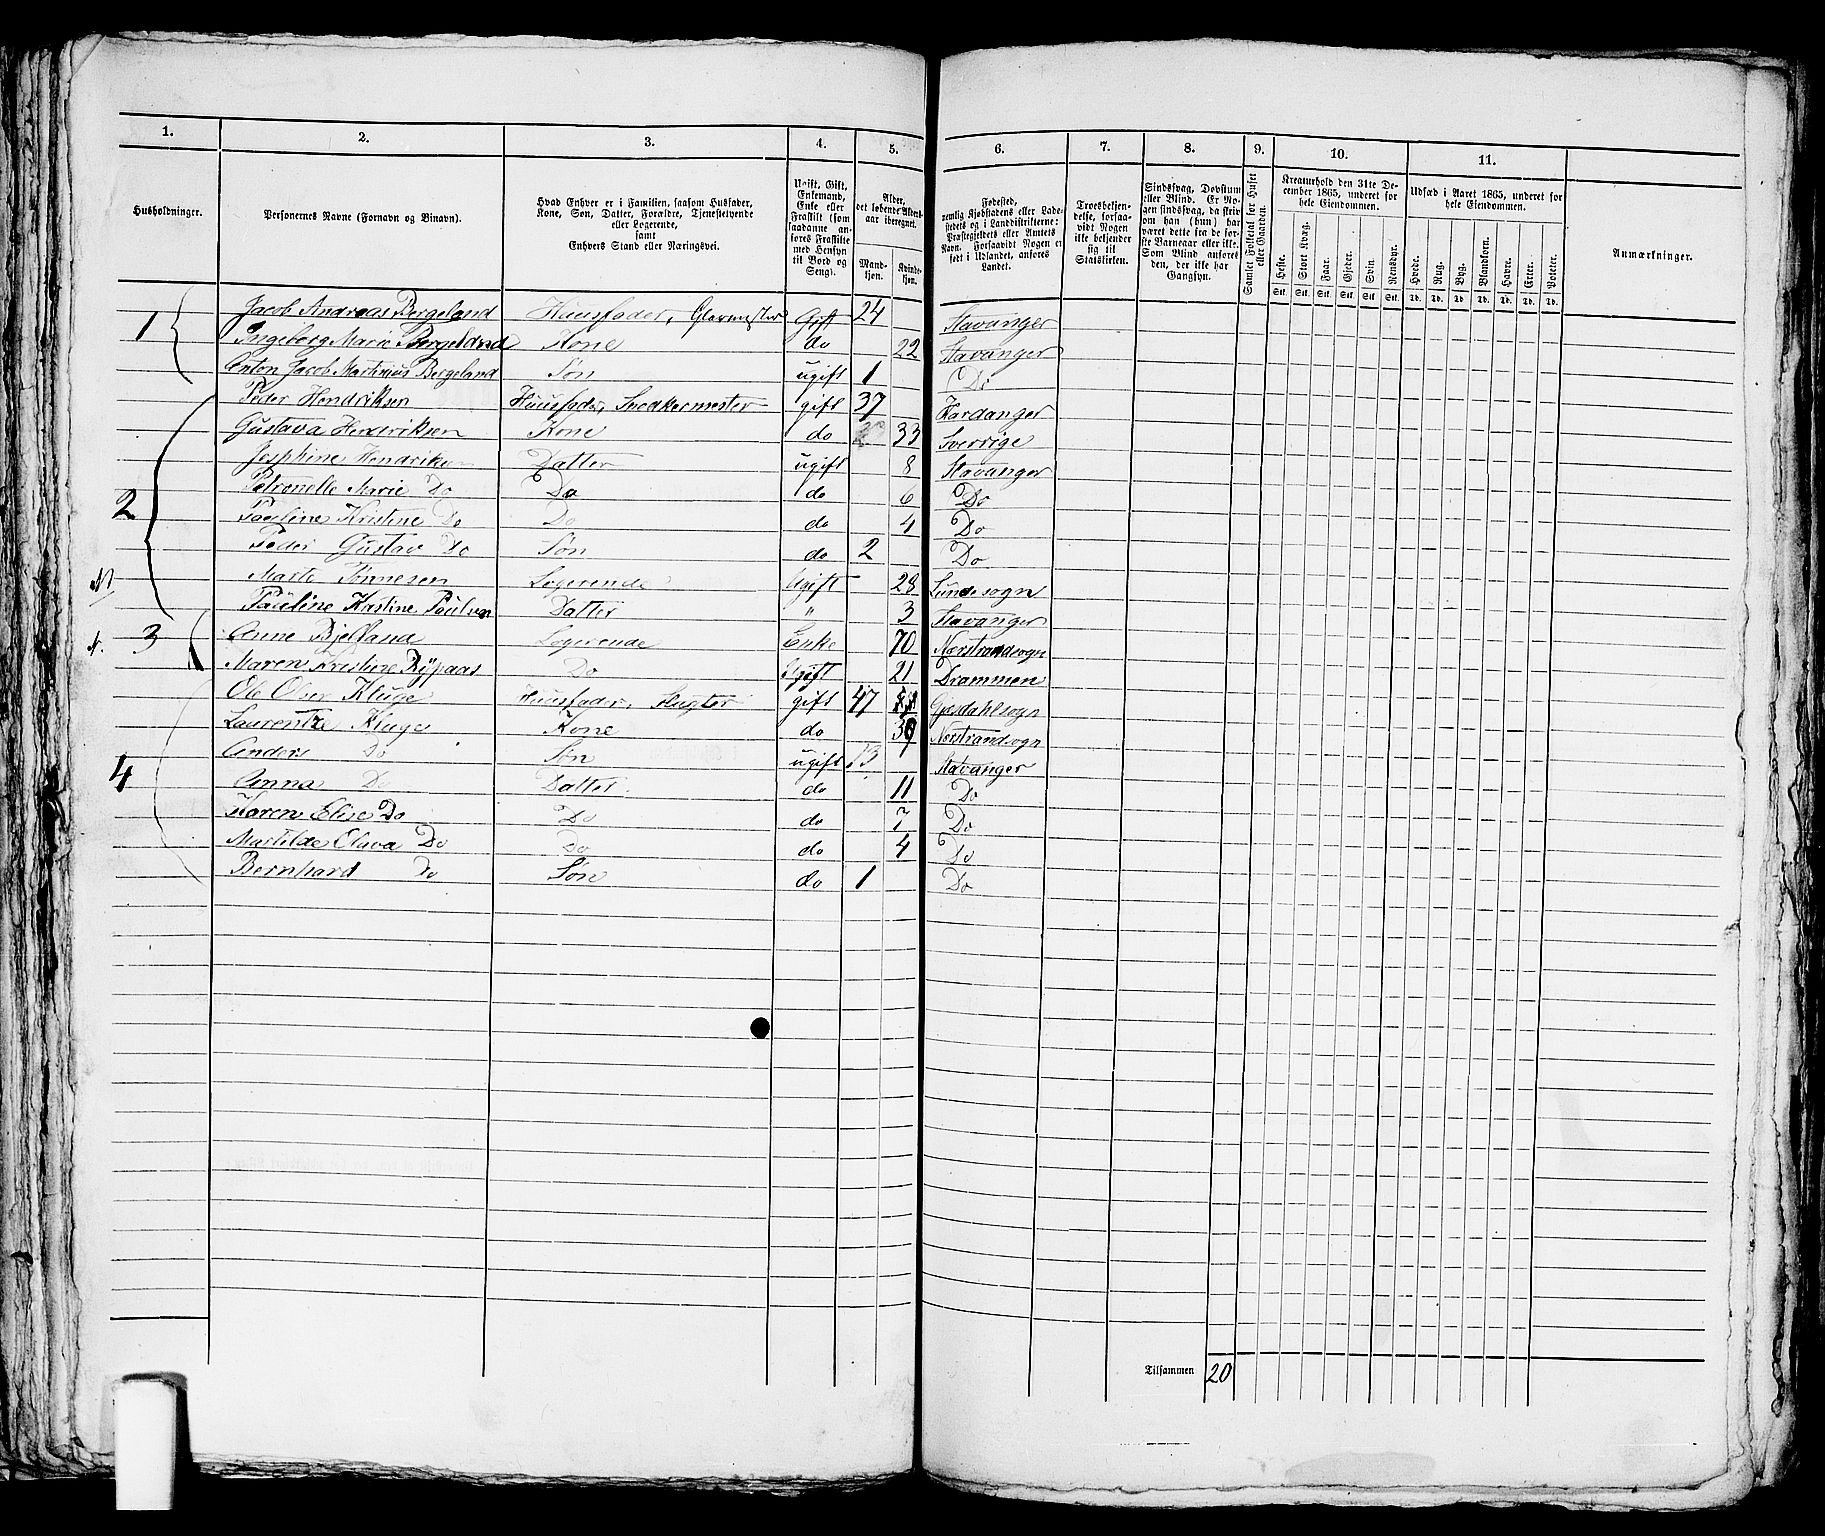 1. 2. 3. 4. 5. 6. 7. 8. 9. 10. 11.
Husholdninger.
Personernes Navne (Fornavn og Binavn).
Hvad Enhver er i Familien, saasom Husfader,
Kone, Søn, Datter, Forældre, Tjenestetyende
eller Logerende,
samt
Enhvers Stand eller Næringsvei.
Ugift, Gift,
Enkemand,
Enke eller
Fraskilt (som
saadanne an-
føres Fraskilte
med Hensyn
til Bord og
Seng).
Alder,
det løbende Alders-
aar iberegnet.
Mand-
kjøn.
Kvinde-
kjøn.
Fødested,
nemlig Kjøbstadens eller Lade-
stedets og i Landdistrikterne:
Præstegjeldets eller Amtets
Navn. Forsaavidt Nogen er
født i Udlandet, anføres
Landet.
Troesbekjen-
delse, forsaa-
vidt Nogen
ikke bekjender
sig til
Statskirken.
Sindssvag, Døvstum
eller Blind. Er No-
gen sindssvag, da skriv
om han (hun) har
været dette fra de før-
ste Barneaar eller ikke.
Som Blind anføres
den, der ikke har
Gangsyn.
Samlet Folketal for Huset
eller Gaarden.
Kreaturhold den 31te De-
cember 1865, underet for
hele Eiendommen.
Heste. Stort Kvæg. Faar. Gjeder. Svin. Rensdyr.
Stk. Stk. Stk. Stk. Stk. Stk.
Udsæd i Aaret 1865, underet for
hele Eiendommen.
Hvede. Rug. Byg. Blandkorn. Havre. Erter. Poteter.
Td. Td. Td. Td. Td. Td. Td.
Anmærkninger.
1 Jacob Andreas Bergeland Huusfader, Glarmester Gift 24 Stavanger
Ingeborg Marie Bergeland Kone do 22 Stavanger
Anton Jacob Martinius Bergeland Søn ugift 1 Do
2 Peder Hendriksen Huusfader, Snedkermester gift 37 Hardanger
Gustava Hendriksen Kone do 33 Sverrige
Josphine Hendriksen Datter ugift 8 Stavanger
Petronelle Marie Do Do do 6 Do
Pauline Kristine Do Do do 4 Do
Peder Gustav Do Søn do 2 Do
Marte Tønnesen Logerende Ugift 28 Lundesogn
Pauline Kristine Paulsen Datter " 3 Stavanger
3 Anne Bjelland Logerende Enke 70 Nerstrandsogn
Maren Kristine Do Ugift 21 Drammen
4 Ole Olsen Kluge Huusfader, gift 47 Gjesdahlsogn
Laurentze Kluge Kone do 39 Nerstrandsogn
Anders Do Søn ugift 13 Stavanger
Anna Do Datter do 11 Do
Karen Elise Do Do do 7 Do
Martilde Olava Do Do do 4 Do
Bernhard Do Søn do 1 Do
Tilsammen 20